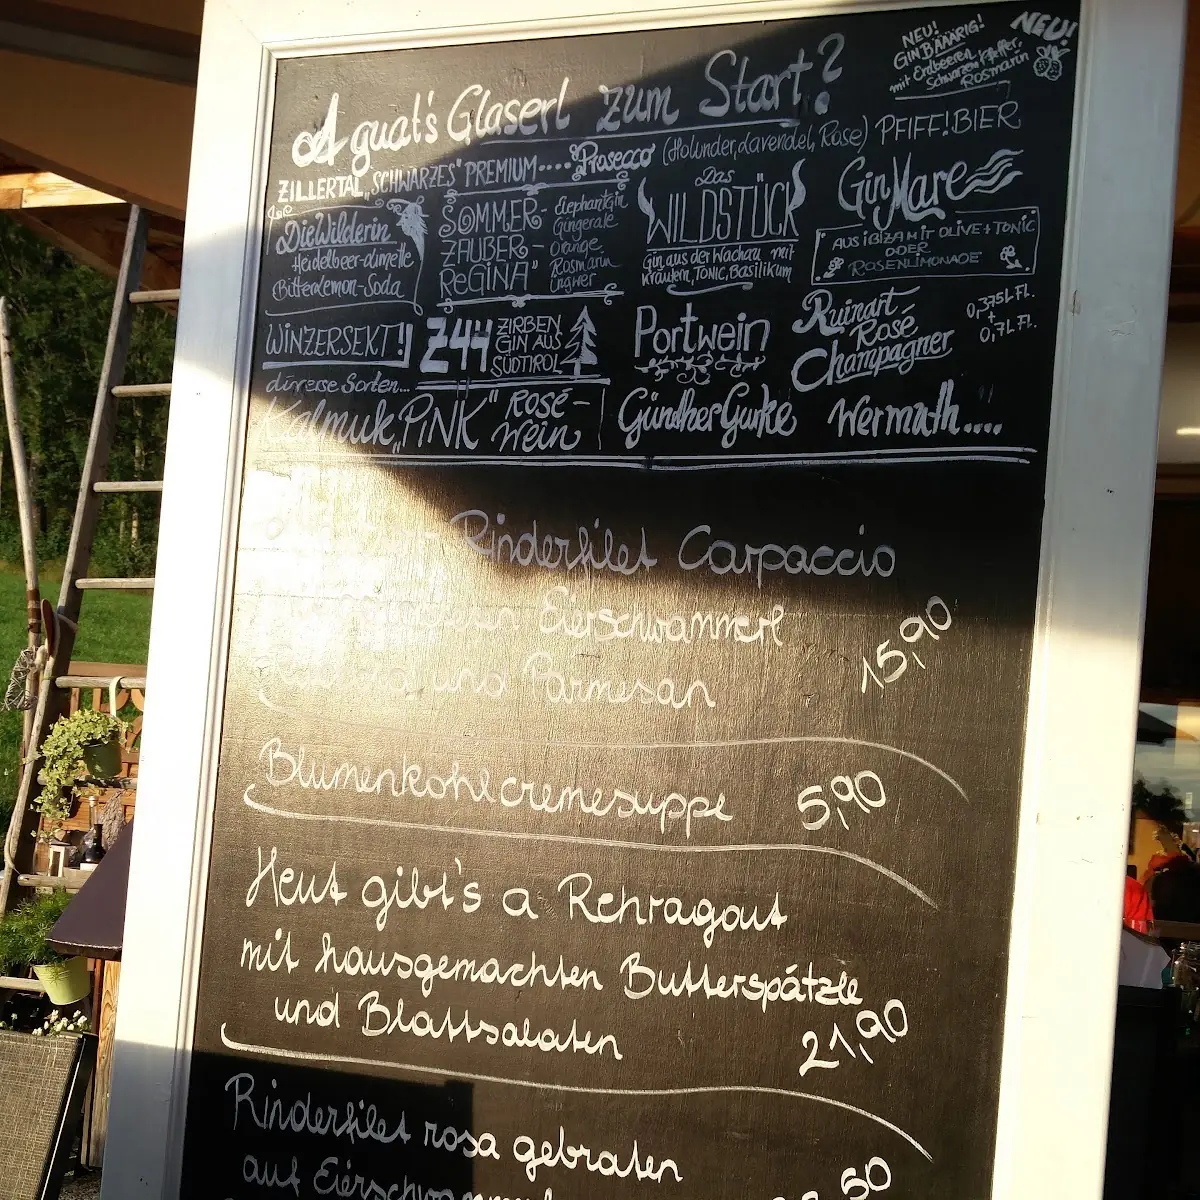 A guat's Glaserl zum Start?
NEU!
GIN BÄÄÄRIG!
mit Erdbeeren,
Schwarzem Pfeffer,
Rosmarin
NEU!
ZILLERTAL „SCHWARZES" PREMIUM.... Prosecco (Holunder, Lavendel, Rose) PFIFF! BIER
Die Wilderin
Heidelbeer-
Bitterlemon-Soda
SOMMER-
ZAUBER-
„REGINA"
Elephant Gin
Gingerale
Orange
Rosmarin
Ingwer
Das
WILDSTÜCK
Gin aus der Wachau mit
Kräutern, TONIC, Basilikum
Gin Mare
AUS IBIZA MIT OLIVE + TONIC
ODER
ROSENLIMONADE
WINZERSEKT!
diverse Sorten...
Z44 ZIRBEN
GIN AUS
SÜDTIROL
Portwein
Ruinart-
Rosé
Champagner
0,375L Fl.
+
0,7L Fl.
Kalmuk „PINK" ROSÉ-
Wein
Günther Gurke
Wermath....
Rinderfilet Carpaccio
Eierschwammerl
und Parmesan
15,90
Blumenkohlcremesuppe 5,90
Heut gibt's a Rehragout
mit hausgemachten Butterspätzle
und Blattsalaten
21,90
Rinderfilet rosa gebraten
auf